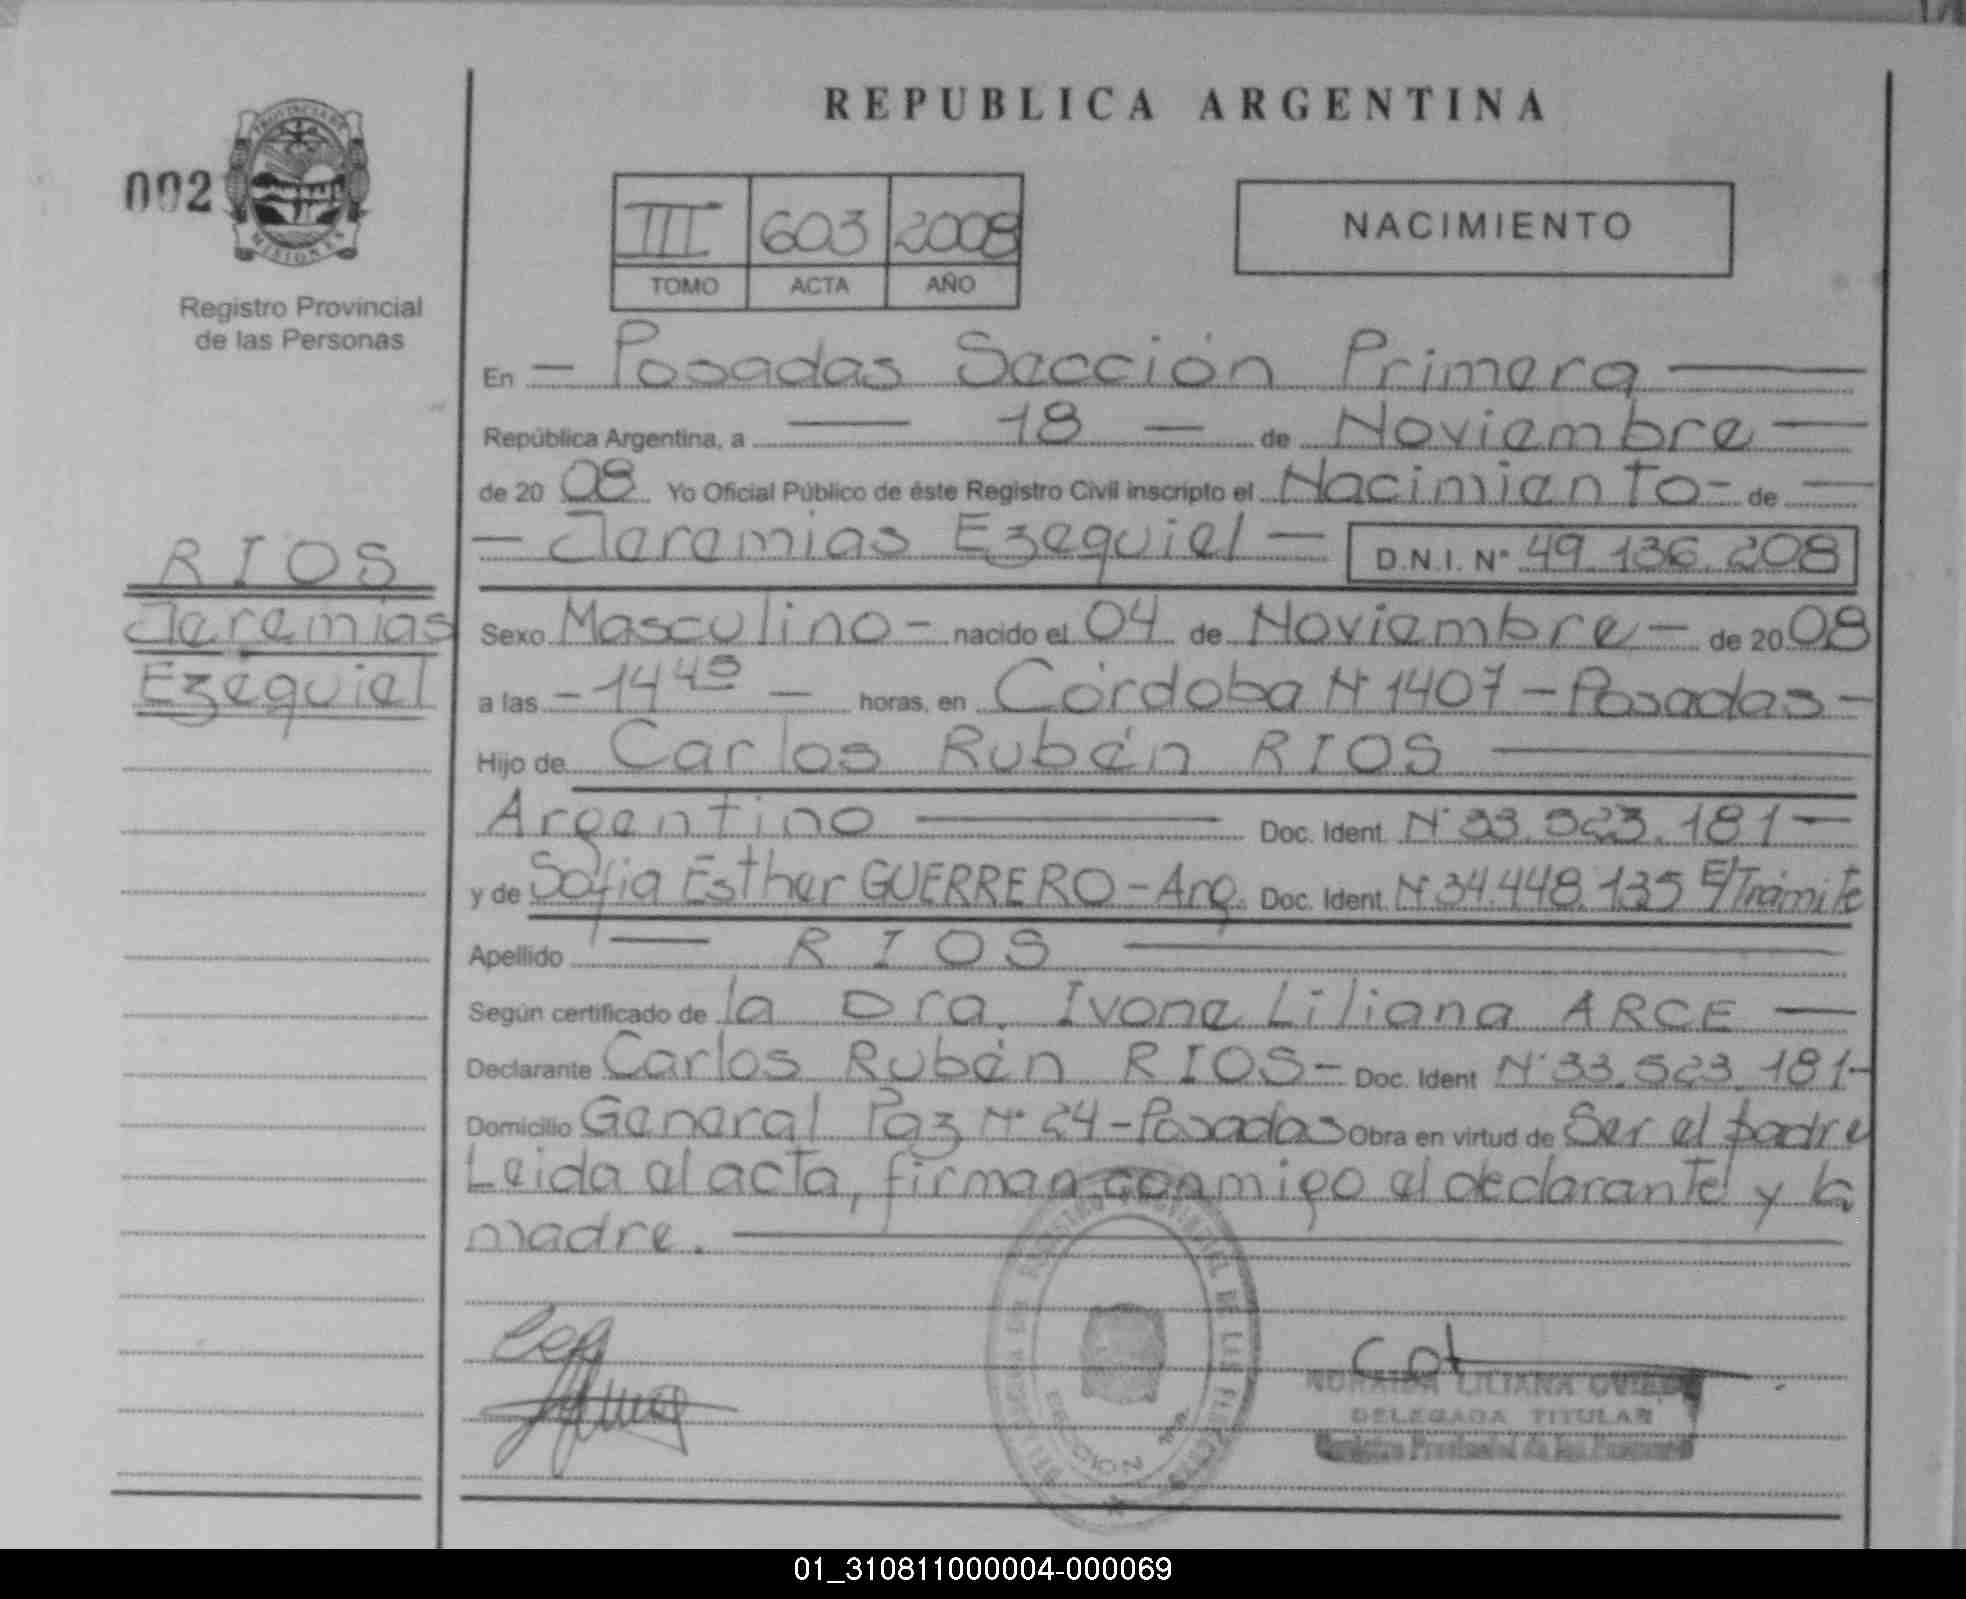 REPUBLICA ARGENTINA
002
PROVINCIA DE
MISIONES
Registro Provincial
de las Personas
III 603 2008
TOMO ACTA AÑO
NACIMIENTO
RIOS
Jeremias
Ezequiel
En - Posadas Sección Primera
República Argentina, a - 18 - de Noviembre -
de 20 08 Yo Oficial Público de éste Registro Civil inscripto el Nacimiento - de -
- Jeremias Ezequiel - D.N.I. N° 49.136.208
Sexo Masculino - nacido el 04 de Noviembre - de 20 08
a las - 14 40 - horas, en Córdoba N° 1407 - Posadas -
Hijo de Carlos Rubén RIOS
Argentino Doc. Ident. N° 33.523.181 -
y de Sofia Esther GUERRERO - Arg. Doc. Ident. N° 34.448.135 E/Trámite
Apellido - RIOS
Según certificado de la Dra. Ivone Liliana ARCE -
Declarante Carlos Rubén RIOS - Doc. Ident N° 33.523.181 -
Domicilio General Paz N° 24 - Posadas Obra en virtud de Ser el padre
Leida el acta, firman conmigo el declarante y la
madre.
LILIANA
DELEGADA TITULAR
Registro Provincial de las Personas
01_310811000004-000069